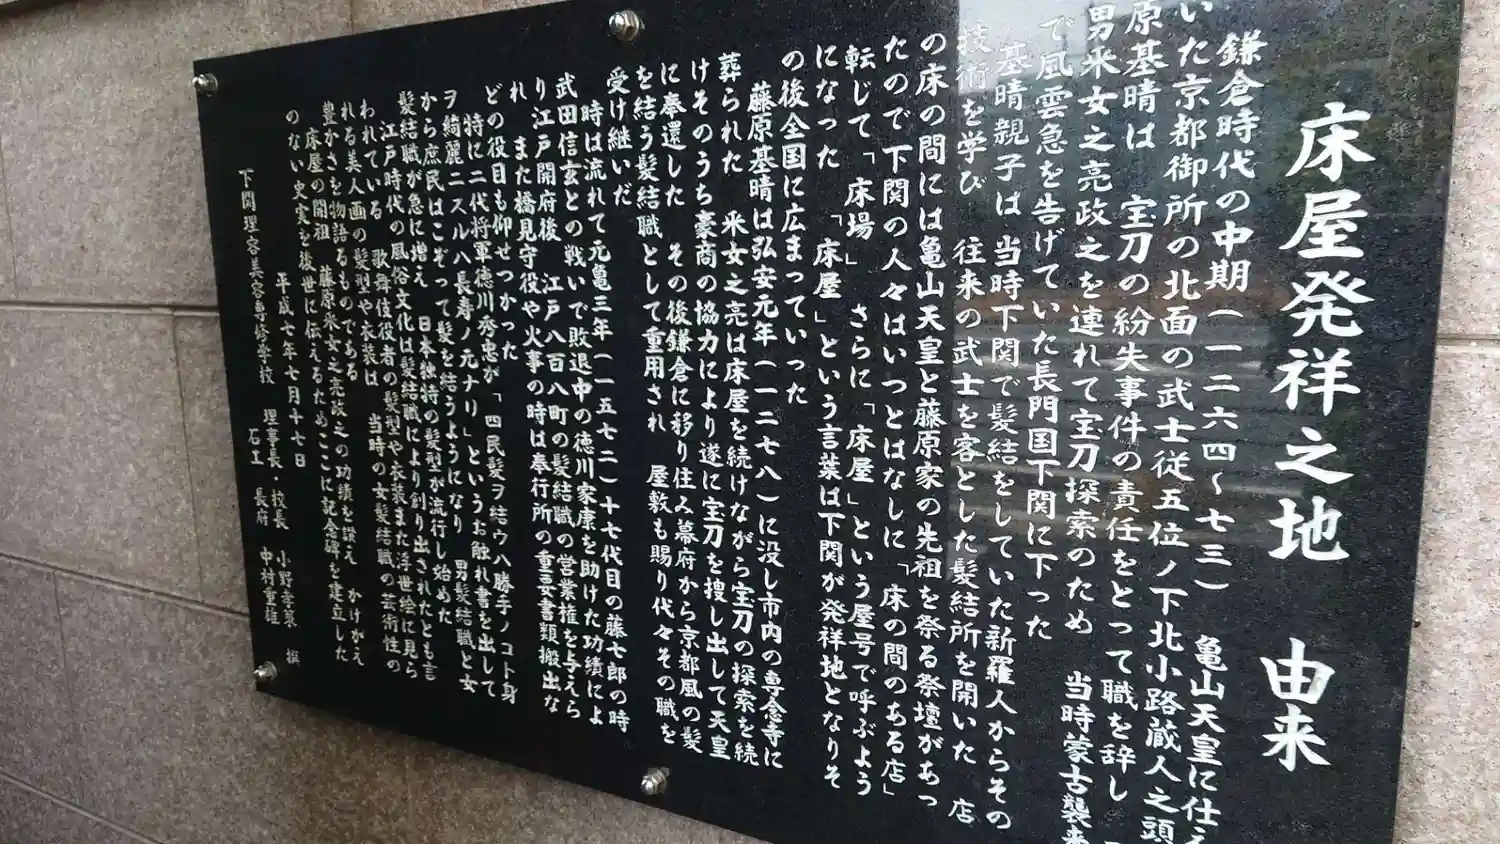 床屋発祥之地 由来
鎌倉時代の中期(一二六四~七三) 亀山天皇に仕え
いた京都御所の北面の武士従五位ノ下北小路蔵人之頭
原基晴は 宝刀の紛失事件の責任をとって職を辞し
男采女之亮政之を連れて宝刀探索のため 当時蒙古襲来
で風雲急を告げていた長門国下関に下った
基晴親子は 当時下関で髪結をしていた新羅人からその
技術を学び 往来の武士を客とした髪結所を開いた 店
の床の間には亀山天皇と藤原家の先祖を祭る祭壇があっ
たので下関の人々はいつとはなしに「床の間のある店」
転じて「床場」 さらに「床屋」という屋号で呼ぶよう
になった 「床屋」という言葉は下関が発祥地となりそ
の後全国に広まっていった
藤原基晴は弘安元年(一二七八)に没し市内の専念寺に
葬られた 采女之亮は床屋を続けながら宝刀の探索を続
けそのうち豪商の協力により遂に宝刀を捜し出して天皇
に奉還した その後鎌倉に移り住み幕府から京都風の髪
を結う髪結職として重用され 屋敷も賜り代々その職を
受け継いだ
時は流れて元亀三年(一五七二)十七代目の藤七郎の時
武田信玄との戦いで敗退中の徳川家康を助けた功績によ
り江戸開府後 江戸八百八町の髪結職の営業権を与えら
れ また橋見守役や火事の時は奉行所の重要書類搬出な
どの役目も仰せつかった
特に二代将軍徳川秀忠が「四民髪ヲ結ウハ勝手ノコト身
ヲ綺麗ニスルハ長寿ノ元ナリ」というお触れ書を出して
から庶民はこぞって髪を結うようになり 男髪結職と女
髪結職が急に増え 日本独特の髪型が流行し始めた
江戸時代の風俗文化は髪結職により創り出されたとも言
われている 歌舞伎役者の髪型や衣装また浮世絵に見ら
れる美人画の髪型や衣装は 当時の女髪結職の芸術性の
豊かさを物語るものである
床屋の開祖 藤原采女之亮政之の功績を讃え かけがえ
のない史実を後世に伝えるためここに記念碑を建立した
平成七年七月十七日
下関理容美容専修学校 理事長・校長 小野孝策 撰
石工 長府 中村重雄